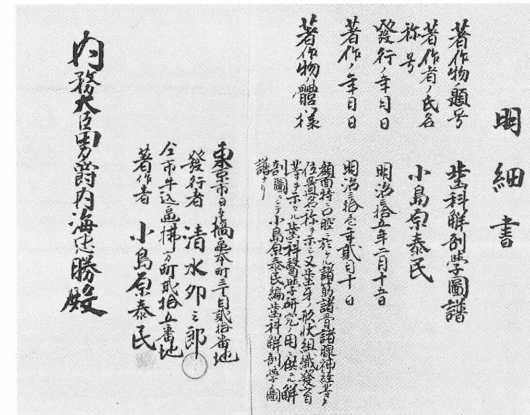 明細書
著作物ノ題号 歯科解剖学圖譜
著作者ノ氏名
称号 小島原泰民
發行ノ年月日 明治三拾五年二月十五日
著作ノ年月日 明治三拾壱年貳月十日
著作物ノ體様 顔面特ニ口腔ニ於ケル諸筋諸骨諸腺神経等ノ
位置名称ヲ示シ又歯牙ノ形状組織發育
等ヲ示セル歯科醫学研究ノ用ニ供スル解
剖圖ニシテ小島原泰民編歯科解剖学圖
譜ナリ
東京市日本橋區本町三丁目貳拾番地
發行者 清水卯三郎
仝市牛込區拂方町貳拾五番地
著作者 小島原泰民
内務大臣男爵内海忠勝殿